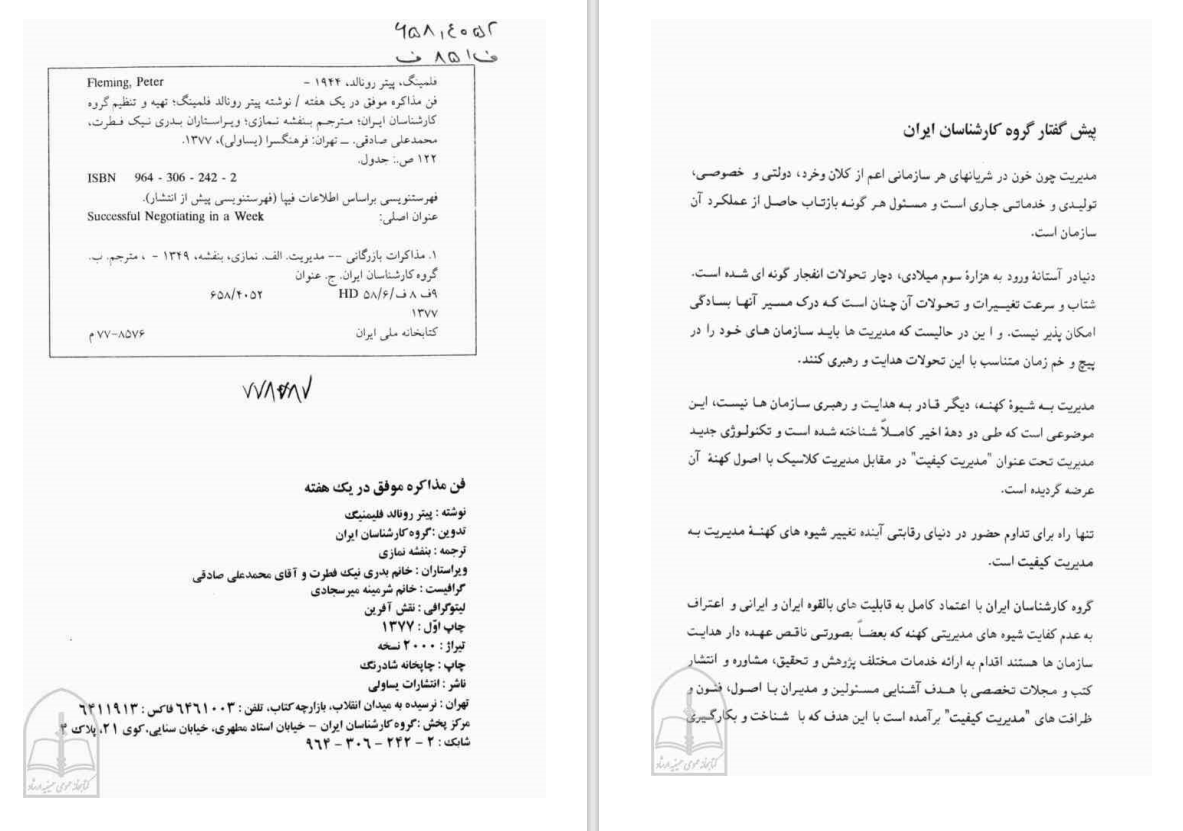 ۶۵۸,۴۰۵۲
ف۸۵۱ ف
فلمینگ، پیتر رونالد، ۱۹۴۴ - Fleming, Peter
فن مذاکره موفق در یک هفته / نوشته پیتر رونالد فلمینگ؛ تهیه و تنظیم گروه
کارشناسان ایران؛ مترجم بنفشه نمازی؛ ویراستاران بدری نیک فطرت،
محمدعلی صادقی. ــ تهران: فرهنگسرا (یساولی)، ۱۳۷۷.
۱۲۲ ص.: جدول.
ISBN 964 - 306 - 242 - 2
فهرستنویسی براساس اطلاعات فیپا (فهرستنویسی پیش از انتشار).
عنوان اصلی: Successful Negotiating in a Week
۱. مذاکرات بازرگانی -- مدیریت. الف. نمازی، بنفشه، ۱۳۴۹ - ، مترجم. ب.
گروه کارشناسان ایران. ج. عنوان
۹ف ۸ ف/۵۸/۶ HD ۶۵۸/۴۰۵۲
۱۳۷۷
کتابخانه ملی ایران ۷۷-۸۵۷۶ م
فن مذاکره موفق در یک هفته
نوشته : پیتر رونالد فلیمنیگ
تدوین :گروه کارشناسان ایران
ترجمه : بنفشه نمازی
ویراستاران : خانم بدری نیک فطرت و آقای محمدعلی صادقی
گرافیست : خانم شرمینه میرسجادی
لیتوگرافی : نقش آفرین
چاپ اوّل : ۱۳۷۷
تیراژ : ۲۰۰۰ نسخه
چاپ : چاپخانه شادرنگ
ناشر : انتشارات یساولی
تهران : نرسیده به میدان انقلاب، بازارچه کتاب، تلفن : ۶۴۶۱۰۰۳ فاکس : ۶۴۱۱۹۱۳
مرکز پخش :گروه کارشناسان ایران - خیابان استاد مطهری، خیابان سنایی،کوی ۲۱، پلاک ۴
شابک : ۲ - ۲۴۲ - ۳۰۶ - ۹۶۴
پیش گفتار گروه کارشناسان ایران
مدیریت چون خون در شریانهای هر سازمانی اعم از کلان وخرد، دولتی و خصوصی،
تولیدی و خدماتی جاری است و مسئول هر گونه بازتاب حاصل از عملکرد آن
سازمان است.
دنیادر آستانۀ ورود به هزارۀ سوم میلادی، دچار تحولات انفجار گونه ای شده است.
شتاب و سرعت تغییرات و تحولات آن چنان است که درک مسیر آنها بسادگی
امکان پذیر نیست. و ا ین در حالیست که مدیریت ها باید سازمان های خود را در
پیچ و خم زمان متناسب با این تحولات هدایت و رهبری کنند.
مدیریت به شیوۀ کهنه، دیگر قادر به هدایت و رهبری سازمان ها نیست، این
موضوعی است که طی دو دهۀ اخیر کاملاً شناخته شده است و تکنولوژی جدید
مدیریت تحت عنوان "مدیریت کیفیت" در مقابل مدیریت کلاسیک با اصول کهنۀ آن
عرضه گردیده است.
تنها راه برای تداوم حضور در دنیای رقابتی آینده تغییر شیوه های کهنۀ مدیریت به
مدیریت کیفیت است.
گروه کارشناسان ایران با اعتماد کامل به قابلیت های بالقوه ایران و ایرانی و اعتراف
به عدم کفایت شیوه های مدیریتی کهنه که بعضاً بصورتی ناقص عهده دار هدایت
سازمان ها هستند اقدام به ارائه خدمات مختلف پژوهش و تحقیق، مشاوره و انتشار
کتب و مجلات تخصصی با هدف آشنایی مسئولین و مدیران با اصول، فنون و
ظرافت های "مدیریت کیفیت" برآمده است با این هدف که با شناخت و بکارگیری